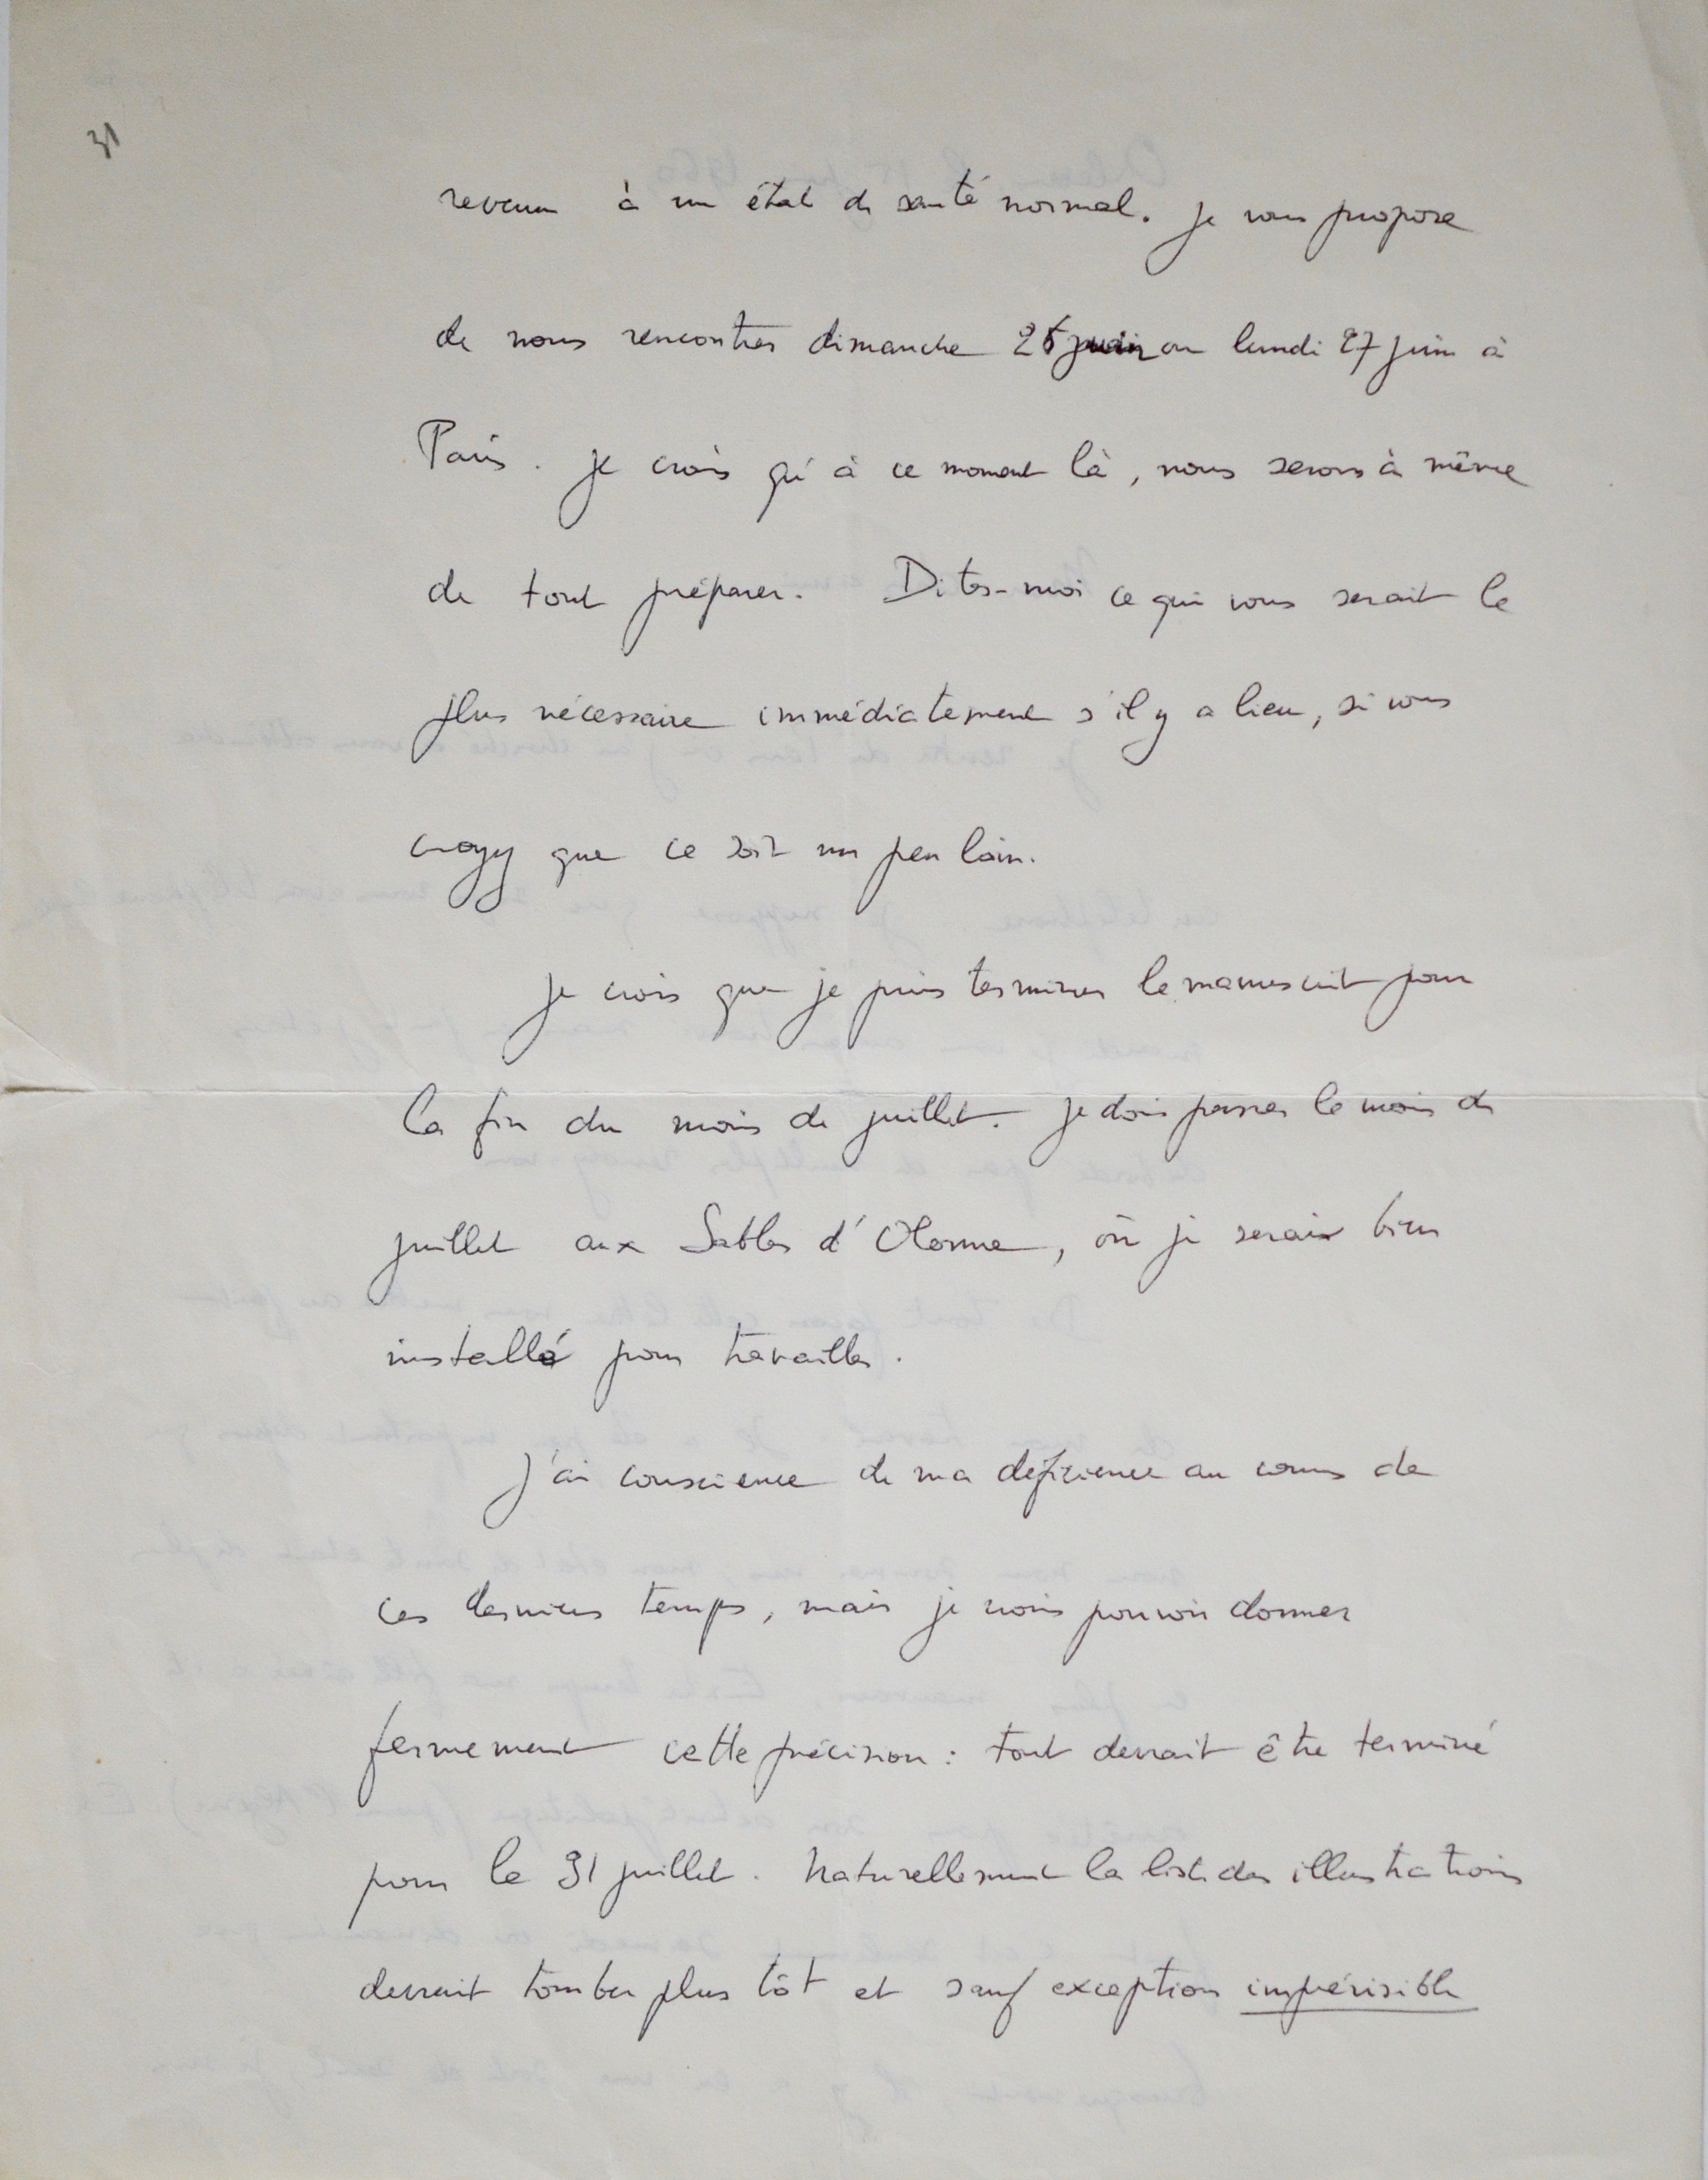 31
revenu à un état de santé normal. Je vous propose
de nous rencontrer dimanche 26 juin ou lundi 27 juin à
Paris. Je crois qu'à ce moment là, nous serons à même
de tout préparer. Dites-moi ce qui vous serait le
plus nécessaire immédiatement s'il y a lieu, si vous
croyez que ce soit un peu loin.
Je crois que je puis terminer le manuscrit pour
la fin du mois de juillet. Je dois passer le mois de
juillet aux Sables d'Olonne, où je serais bien
installé pour travailler.
J'ai conscience de ma déficience au cours de
ces derniers temps, mais je crois pouvoir donner
fermement cette précision : tout devrait être terminé
pour le 31 juillet. Naturellement la liste des illustrations
devrait tomber plus tôt et sauf exception imprévisible